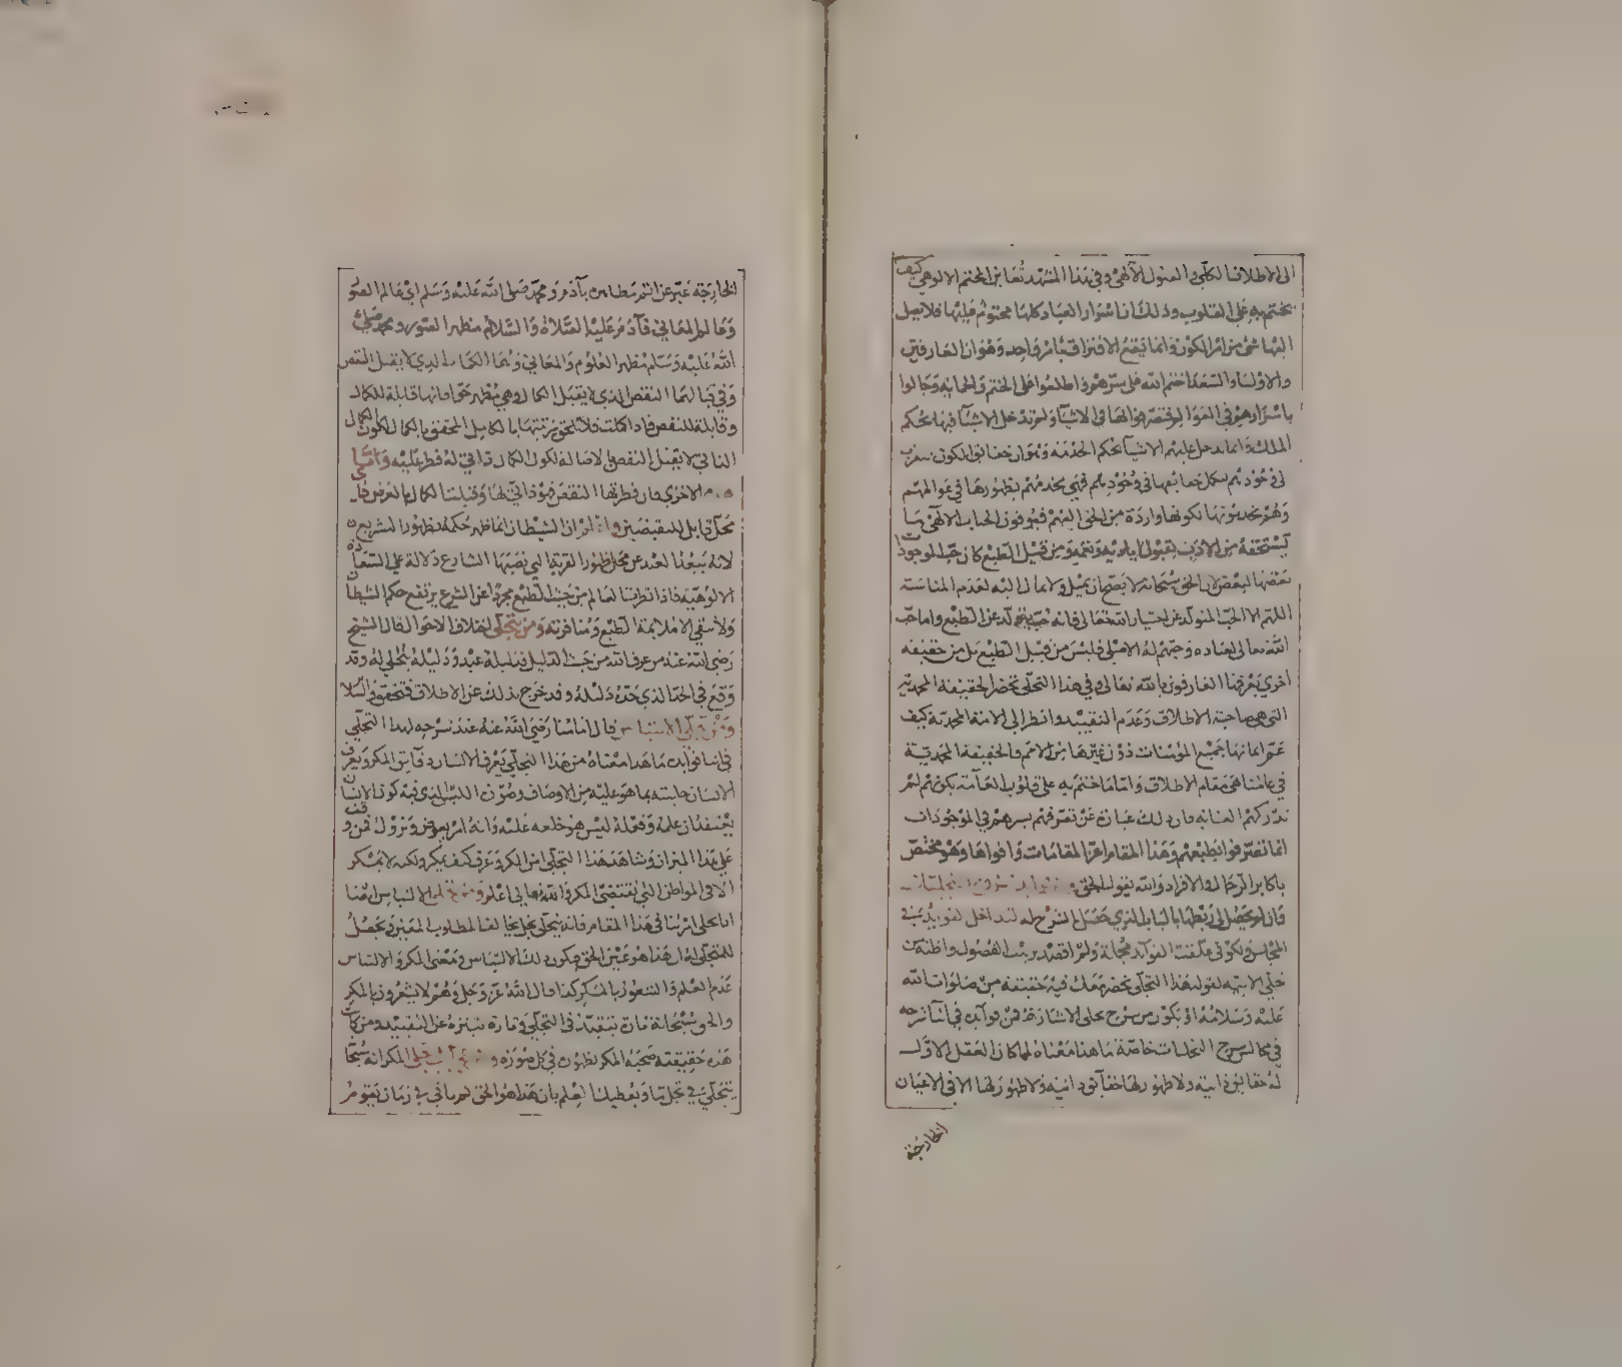 الى الاطلاق الكلي والعقول الالهي وفي هذا المشهد تعاين الختم الالوهي كيف
يختم به على القلوب وذلك ان اسرار العباد كلها مختوم عليها فلا يصل
اليها شئ من امر الكون وانما يقع الافتراق بامر واحد وهو ان العارفين
والاولياء والسعداء ختم الله على سرهم واطلعوا على الختم والخاتمة وجالوا
باسرارهم في العوالم
الملك وانما دخل عليهم الاشياء بحكم الخدمة
في وجودهم فهي تخدمهم بظهورها في عوالمهم
وهم يخدمونها لكونها واردة من الحق اليهم فيوفون الجناب الالهي ما
يستحقه من الادب بقبول اياديه ونعمه ومن قبل الطبع كان حب الموجودات
بعضها لبعض لان الحق سبحانه لا يصح ان يميل ولا يمال اليه لعدم المناسبة
اللهم الا الحب المتولد عن اختيار الله تعالى فانه حب يتولد عن الطبع واما حب
الله تعالى لعباده وحبهم له الاصلي فليس من قبل الطبع بل من حقيقة
اخرى يعرفها العارفون بالله تعالى وفي هذا التجلي تحضر الحقيقة المحمدية
التي هي صاحبة الاطلاق وعدم التقييد وانظر الى الامة المحمدية كيف
عم ايمانها جميع المؤمنات دون غيرها من الامم والحقيقة المحمدية
في عالمنا هي مقام الاطلاق واما ما ختم به على قلوب العامة بكونهم لم
تدركهم العناية فان ذلك عبارة عن تصرفهم بسرهم في الموجودات
انما تصرفوا بطبعهم وهذا المقام اعز المقامات واقواها وهو مختص
باكابر الرجال والافراد والله يقول الحق
وان لم يحصل لي ربطها بالباب الذي حصل الشرح له لتداخل الفوايد في
المجالس ولكوني علقت الفوائد مجملة ولم اقصد ترتيب الفصول واظنه من
تجلي الانية لقوله هذا التجلي تحضر معك فيه حقيقة من صلوات الله
عليه وسلامه او يكون من شرح تجلي الاشارة فمن فوائده في اثناء شرحه
في مجالس شرح التجليات خاصة ما هذا معناه لما كان العقل الاول
له حقائق ذاتية ولا ظهور لها حقائق ذاتية ولا ظهور لها الا في الاعيان
الخارجة
الخارجة عبر عن الثمرتين بآدم ومحمد صلى الله عليه وسلم اي عالم الصور
وعالم المعاني فآدم عليه الصلاة والسلام مظهر الصور ومحمد صلى
الله عليه وسلم مظهر العلوم والمعاني وهما الكمال الذي لا يقبل النقص
وفي قبالتهما النقص الذي لا يقبل الكمال وهي مظهر حوا فانها قابلة للكمال
وقابلة للنقص فاذا كملت فلا تلحق مرتبتها بالكامل المحقق بالكمال لكون كمال
الذاتي لا يقبل النقص بالاصالة لكون الكمال ذاتي له فطر عليه واما
الاخرى فان فطرتها النقص فهو ذاتي لها وقبلت الكمال بالعرض فلا
محل قابل للنقيضين واعلم ان الشيطان انما ظهر حكمه بظهور الشريعة
لانه يبعد العبد عن محل ظهور القربة التي نصبها الشارع دلالة على السعادة
الالوهية فاذا نظرنا العالم من حيث الطبع مجردا عن الشرع يرتفع حكم الشيطان
ولا يبقى الا ملايمة الطبع ومنافرته ومن تجلي اختلاف الاحوال قال الشيخ
رضي الله عنه من عرف الله من حيث الدليل فدليله عبد ودليله يتجلى له وقد
وقع في الحد الذي حده دليله وقد خرج بذلك عن الاطلاق فتحققوا السلام
ومن تجلي الالتباس قال امامنا رضي الله عنه عند شرحه لهذا التجلي
في اثنا فوايده ما هذا معناه من هذا التجلي يعرف الانسان دقائق المكر ويعرف
الانسان حليته بما هو عليه من الاوصاف وصون اللبس الذي فيه كون الانسان
يعتقد ان علمه وفعله ليس هو خلعه عليه وانه امر يعرض ويزول فمن وقف
على هذا الميزان وشاهد هذا التجلي امن المكر وعرف كيف يمكر ولكنه لا يمكر
الا في المواطن التي يقتضي المكر والله تعالى اعلم ومن تجلي الالتباس ايضا
اذا تجلى امر ما في هذا المقام فانه يتجلى بحل تخالفا المطلوب المعين فيحصل
للمتجلى له ان هذا هو عين الحق فيكون ذلك الالتباس ومعنى المكر والالتباس
عدم العلم والشعور بالمكر كذا قال الله عز وجل وهم لا يشعرون بالمكر
والحق سبحانه تارة يتقيد في التجلي وتارة يتنزه عن التقييد ومن كانت
هذه حقيقته صحبه المكر لظهوره في كل صورة المكر انه سبحانه
يتجلى في تجل ما ويعطيك العلم بان هذا هو الحق ثم ياتي في زمان يقوم